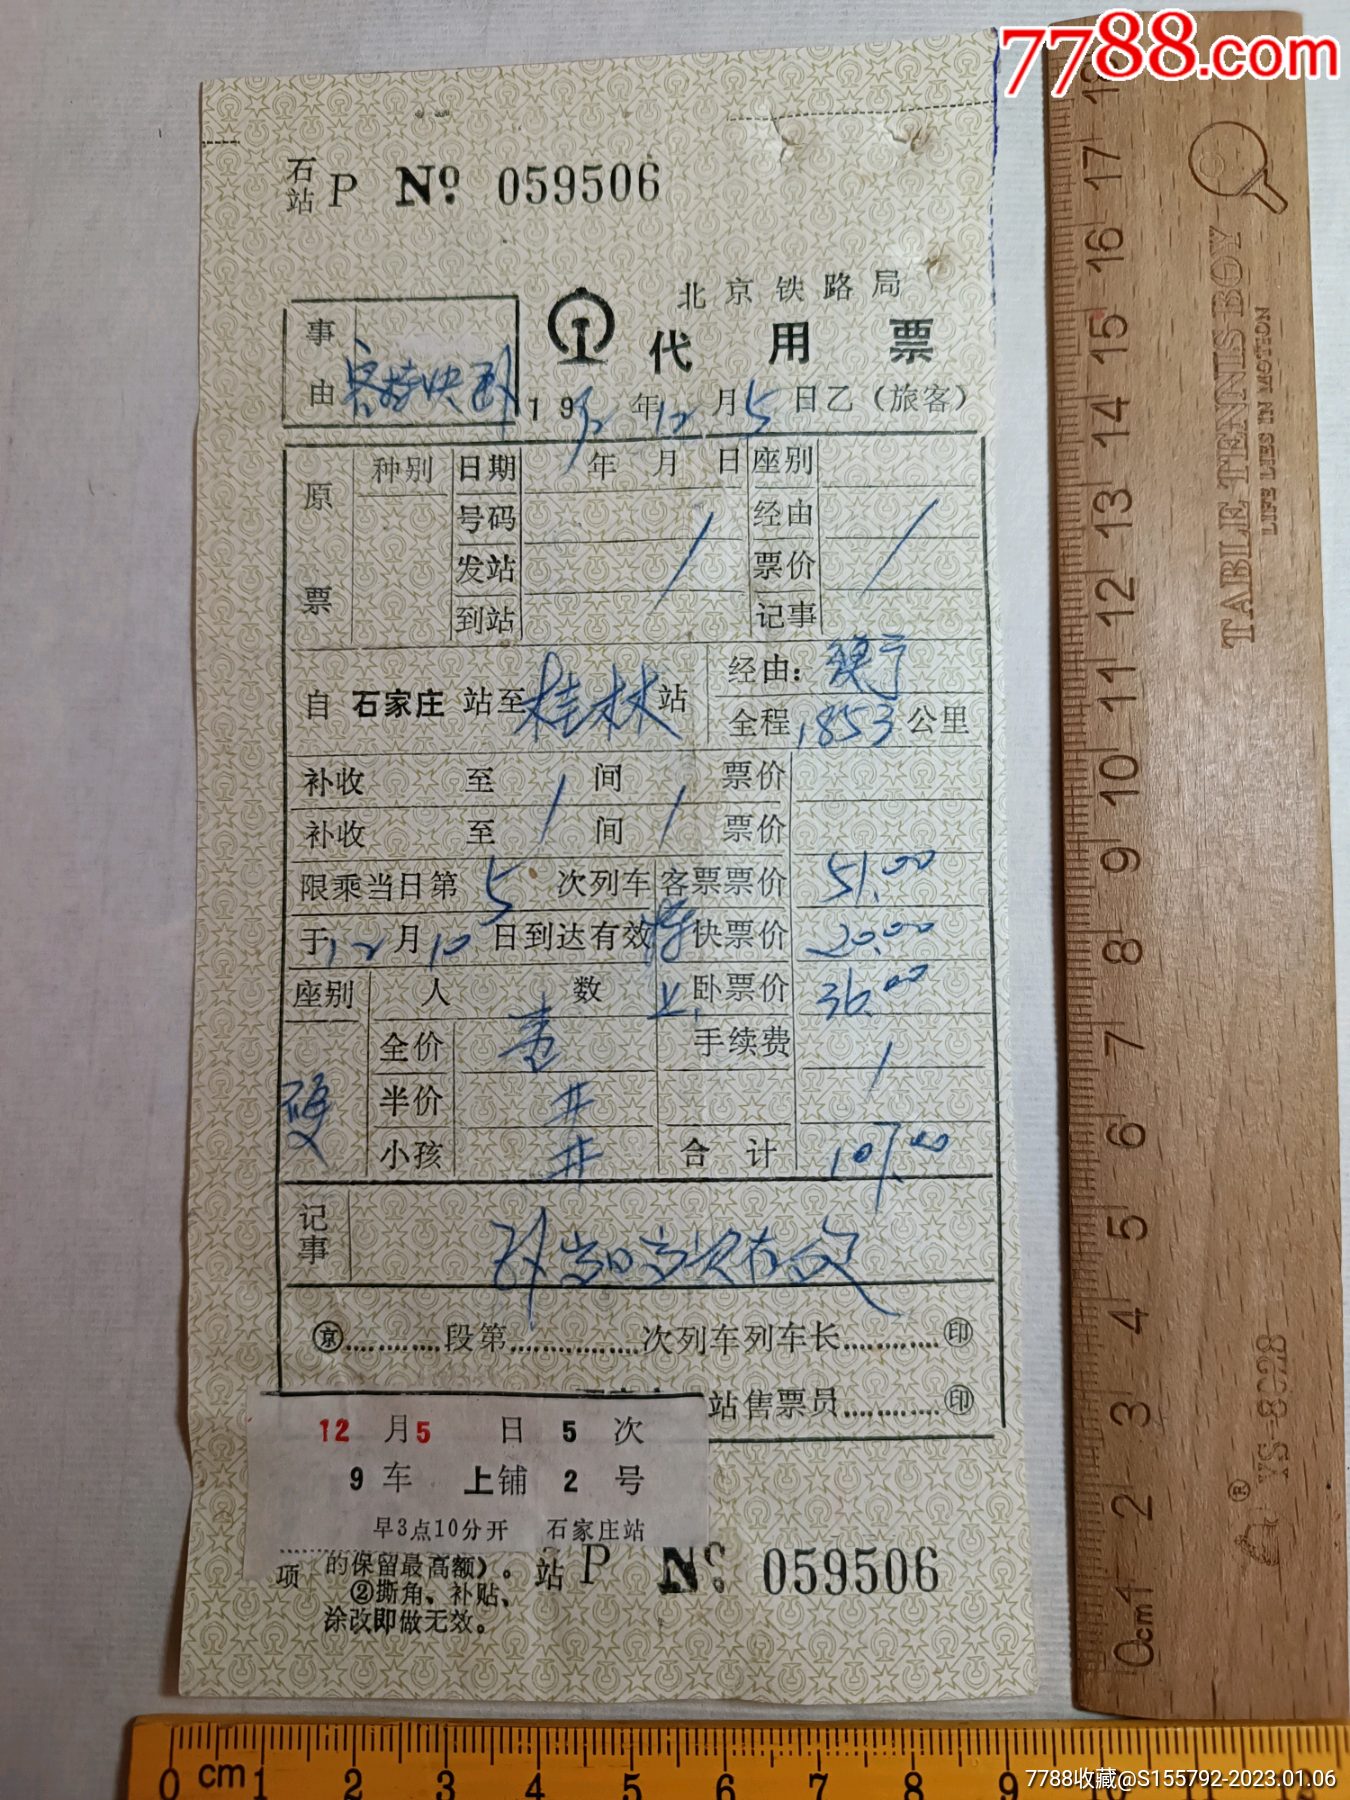 7788.com
石站 P No 059506
北京铁路局
代用票
事由 客特快卧
19 年12月5日乙(旅客)
原票 种别 日期 年 月 日 座别
号码 经由
发站 票价
到站 记事
自 石家庄 站至 桂林 站 经由:
全程 1853 公里
补收 至 间 票价
补收 至 间 票价
限乘当日第 5 次列车 客票票价 51.00
于12月10日到达有效 特快票价 20.00
座别 人数 上卧票价 36.00
硬 全价 壹 手续费
半价 #
小孩 # 合计 107.00
记事
京............段第................次列车列车长............印
站售票员............印
12月5日 5次
9车 上铺 2号
早3点10分开 石家庄站
项 的保留最高额)。 站 P No 059506
②撕角、补贴、
涂改即做无效。
TABLE TENNIS BOY
LIFE LIES IN MOTION
YS-8028
®
18 17 16 15 14 13 12 11 10 9 8 7 6 5 4 3 2 1 0cm
0 cm 1 2 3 4 5 6 7 8 9 10 11 12
7788收藏@S155792-2023.01.06